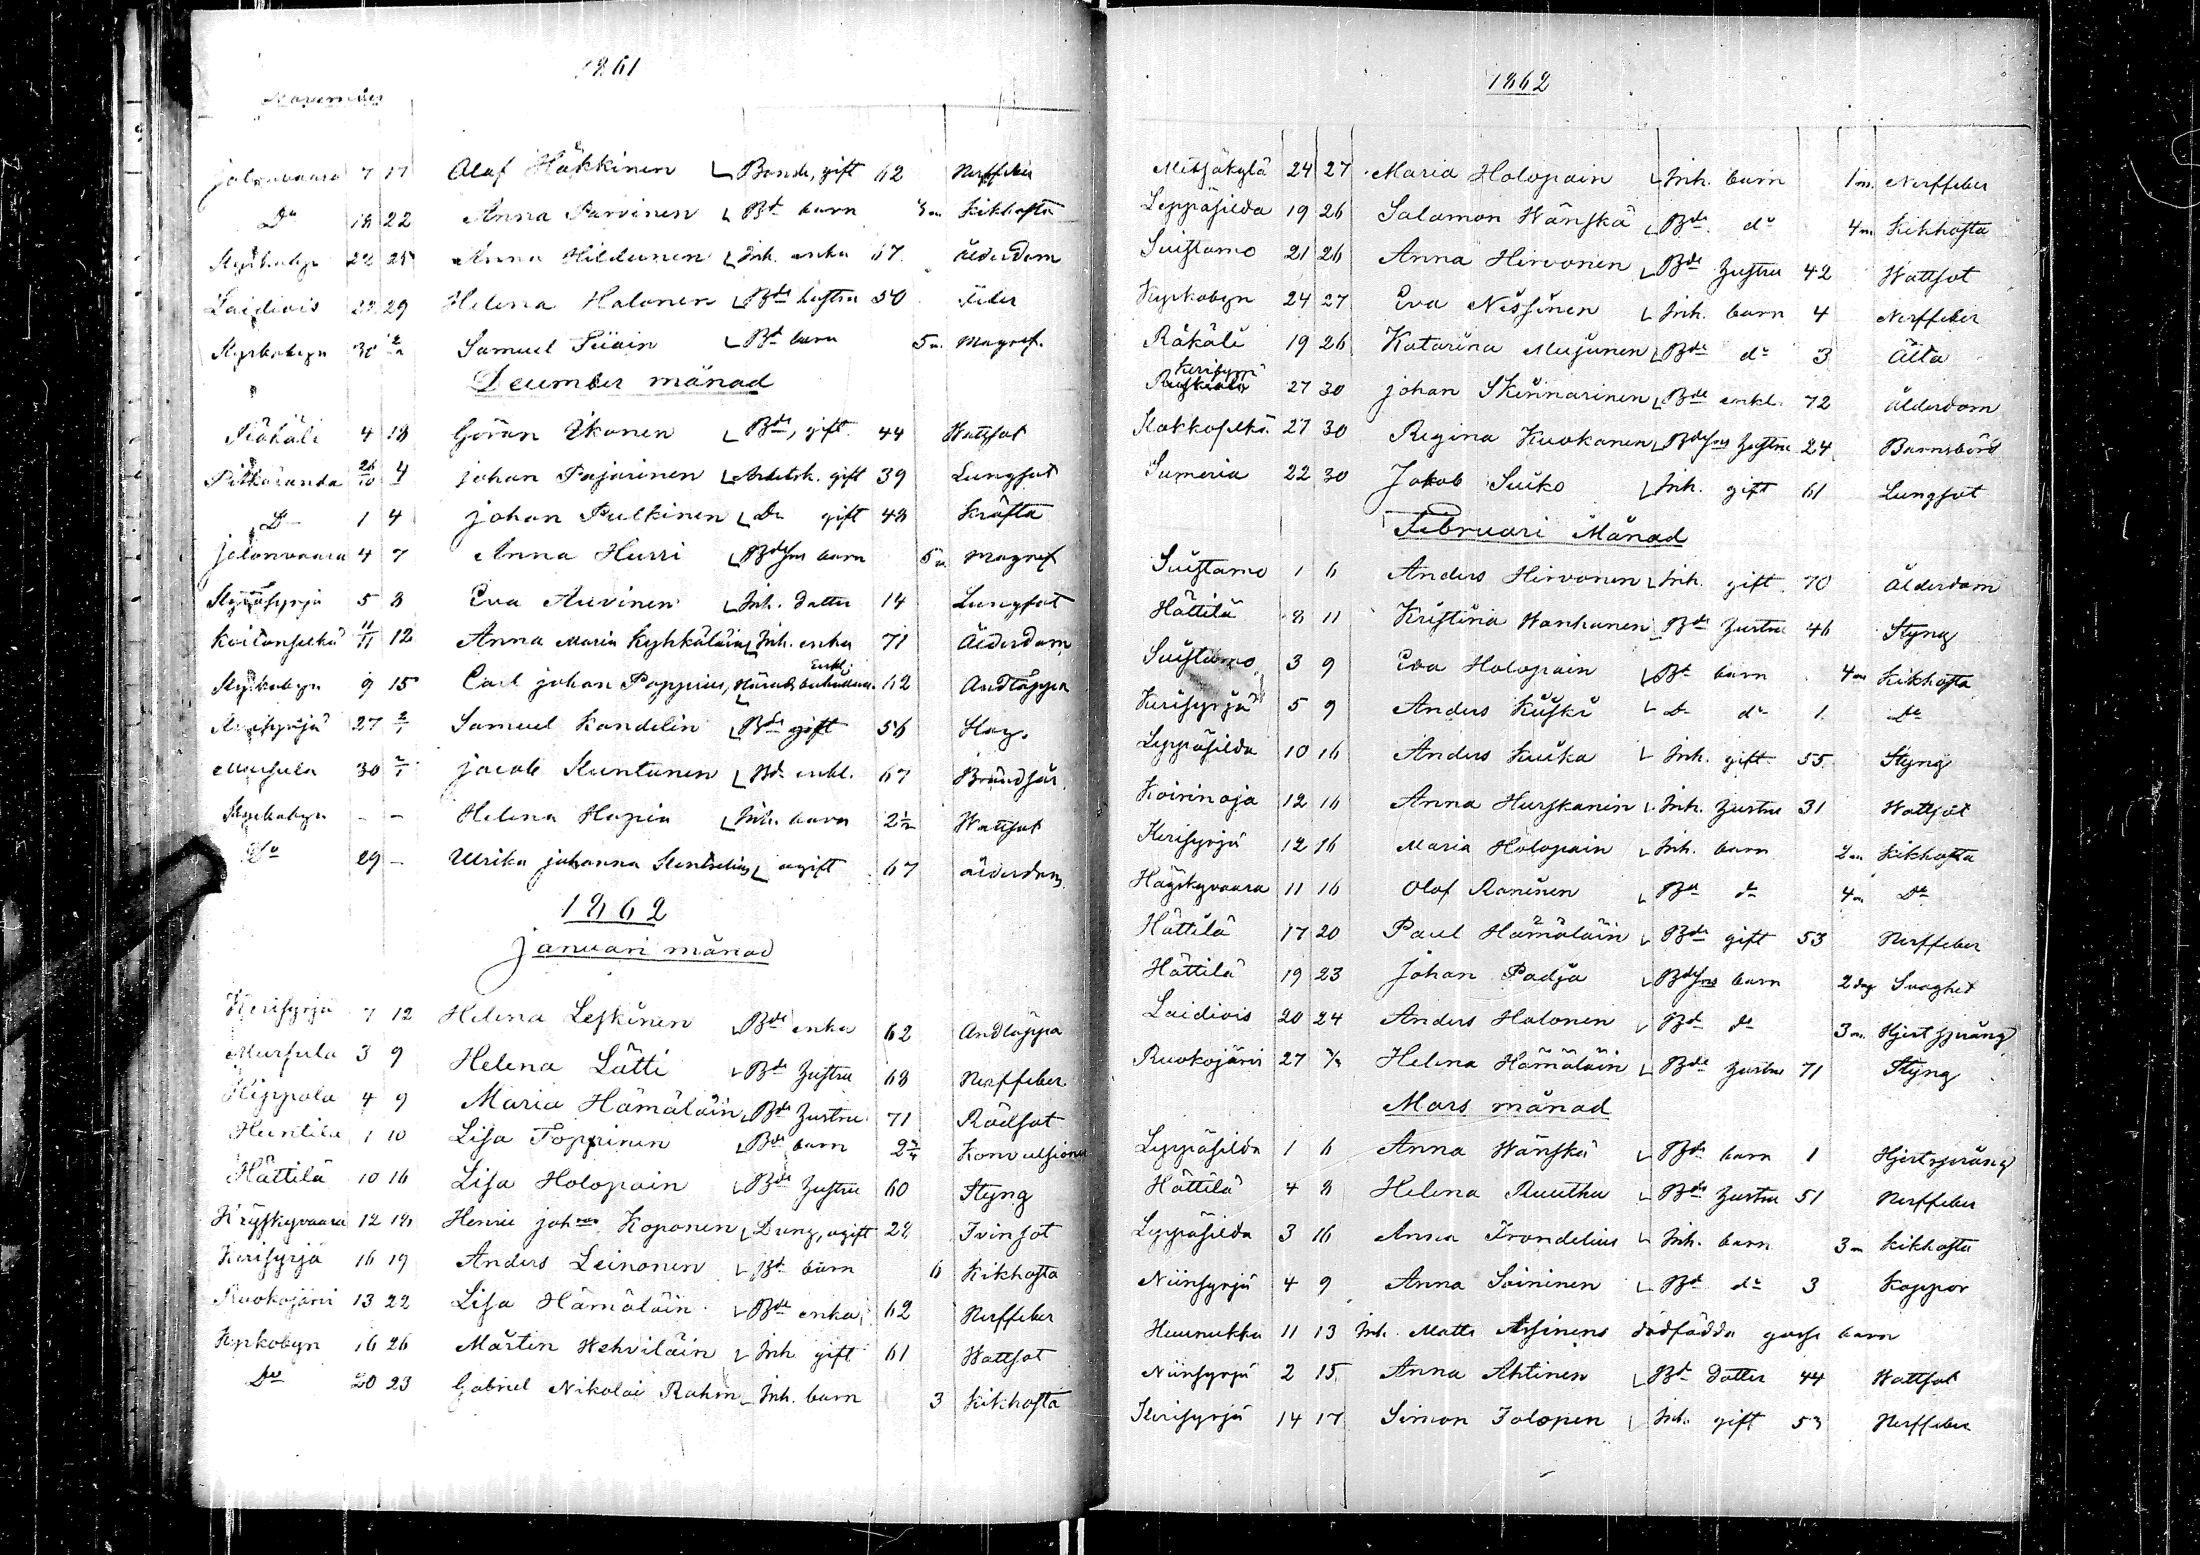 1861
November
Jalonvaara 7 17 Olof Häkkinen Bonde, gift 62 Nerffeber
Do 18 22 Anna Parvinen Bd barn 3 m Kikhosta
Kyrkobyn 22 25 Anna Hildunen Inh. enka 67 ålderdom
Laidiois 22 29 Helena Halonen Bde hustru 50 Feber
Kyrkobyn 30 Samuel Bd barn 5 m. Magref.
December månad
Räkäli 4 18 Göran Ikonen Bde, gift 44 Wattsot
Pitkäranda 26/10 4 Johan Pajarinen Arbetsk. gift 39 Lungsot
D 1 4 Johan Pulkinen Do gift 48 Kräfta
Jalonvaara 4 7 Anna Hurri Bdesns barn 5 m Magref
5 8 Eva Auvinen Inh. dotter 14 Lungsot
Koitonselkä 11/11 12 Anna Maria Kyhkäläin Inh. enka 71 Ålderdom
Kyrkobyn 9 15 Carl Johan Poppius, Härads Enkl. 62 Andtäppa
27 2/1 Samuel Kandelin Bde gift 56
Mursula 30 2/1 Jacob Kuntunen Bde enkl. 67
Kyrkobyn - - Helena Inh. barn 2 1/2 Wattsot
Do 29 - Ulrika Johanna ogift 67 ålderdom
1862
Januari månad
Kerisyrjä 7 12 Helena Leskinen Bde enka 62 Andtäppa
Mursula 3 9 Helena Lätti Bde hustru 68 Nerffeber
Kippola 4 9 Maria Hämäläin Bde hustru 71 Rödsot
1 10 Lisa Toppinen Bde barn 2 3/4 Konvulsioner
Hättilä 10 16 Lisa Holopain Bde hustru 60 Styng
12 Koponen Dräng, ogift 22 Tvinsot
Kerisyrjä 16 19 Anders Leinonen Bd barn 6 Kikhosta
Ruokojärvi 13 22 Lisa Hämäläin Bde enka 62 Nerffeber
Kyrkobyn 16 26 Mårten Wehviläin Inh gift 61 Wattsot
Do 20 23 Gabriel Nikolai Rahm Inh. barn 3 Kikhosta
1862
Metsäkylä 24 27 Maria Holopain Inh. barn 1 m. Nerffeber
Leppäsilda 19 26 Salamon Wänskä Bde do 4 m Kikhosta
Suistamo 21 26 Anna Hirvonen Bde hustru 42 Wattsot
Kyrkobyn 24 27 Eva Nissinen Inh. barn 4 Nerffeber
Räkäli 19 26 Katarina Mujunen Bde do 3 Älta
Kerisyrjä Ruskeala 27 30 Johan Skinnarinen Bde enkl. 72 ålderdom
Kokkoselkä 27 30 Regina Kuokanen Bdesns hustru 24 Barnsbörd
Sumeria 22 30 Jakob Suiko Inh. gift 61 Lungsot
Februari Månad
Suistamo 1 6 Anders Hirvonen Inh. gift 70 ålderdom
Hättilä 8 11 Kristina Wanhanen Bde hustru 46 Styng
Suistamo 3 9 Eva Holopain Bd barn 4 m Kikhosta
Kerisyrjä 5 9 Anders Kuiski D do 1 Do
Leppäsilda 10 16 Anders Kuuka Inh. gift 55 Styng
Koirinoja 12 16 Anna Hurskanin Inh. hustru 31 Wattsot
Kerisyrjä 12 16 Maria Holopain Inh. barn 2 m Kikhosta
Häyskyvaara 11 16 Olof Raninen Bd do 4 m Do
Hättilä 17 20 Paul Hämäläin Bde gift 53 Nerffeber
Hättilä 19 23 Johan Padja Bdesns barn 2 dag Svaghet
Laidiois 20 24 Anders Halonen Bd do 3 m. Hjertspräng
Ruokojärvi 27 Helena Hämäläin Bde hustru 71 Styng
Mars månad
Leppäsilda 1 6 Anna Wänskä Bde barn 1 Hjertspräng
Hättilä 4 8 Helena Ruuthu Bde hustru 51 Nerffeber
Leppäsilda 3 16 Anna Trondelius Inh. barn 3 m Kikhosta
Niinsyrjä 4 9 Anna Soininen Bd do 3 Koppor
11 13 Inh. Matts Assinens dödfödda gosse barn
Niinsyrjä 2 15 Anna Ahtinen Bd dotter 44 Wattsot
Kerisyrjä 14 17 Simon Jolopen Inh. gift 53 Nerffeber